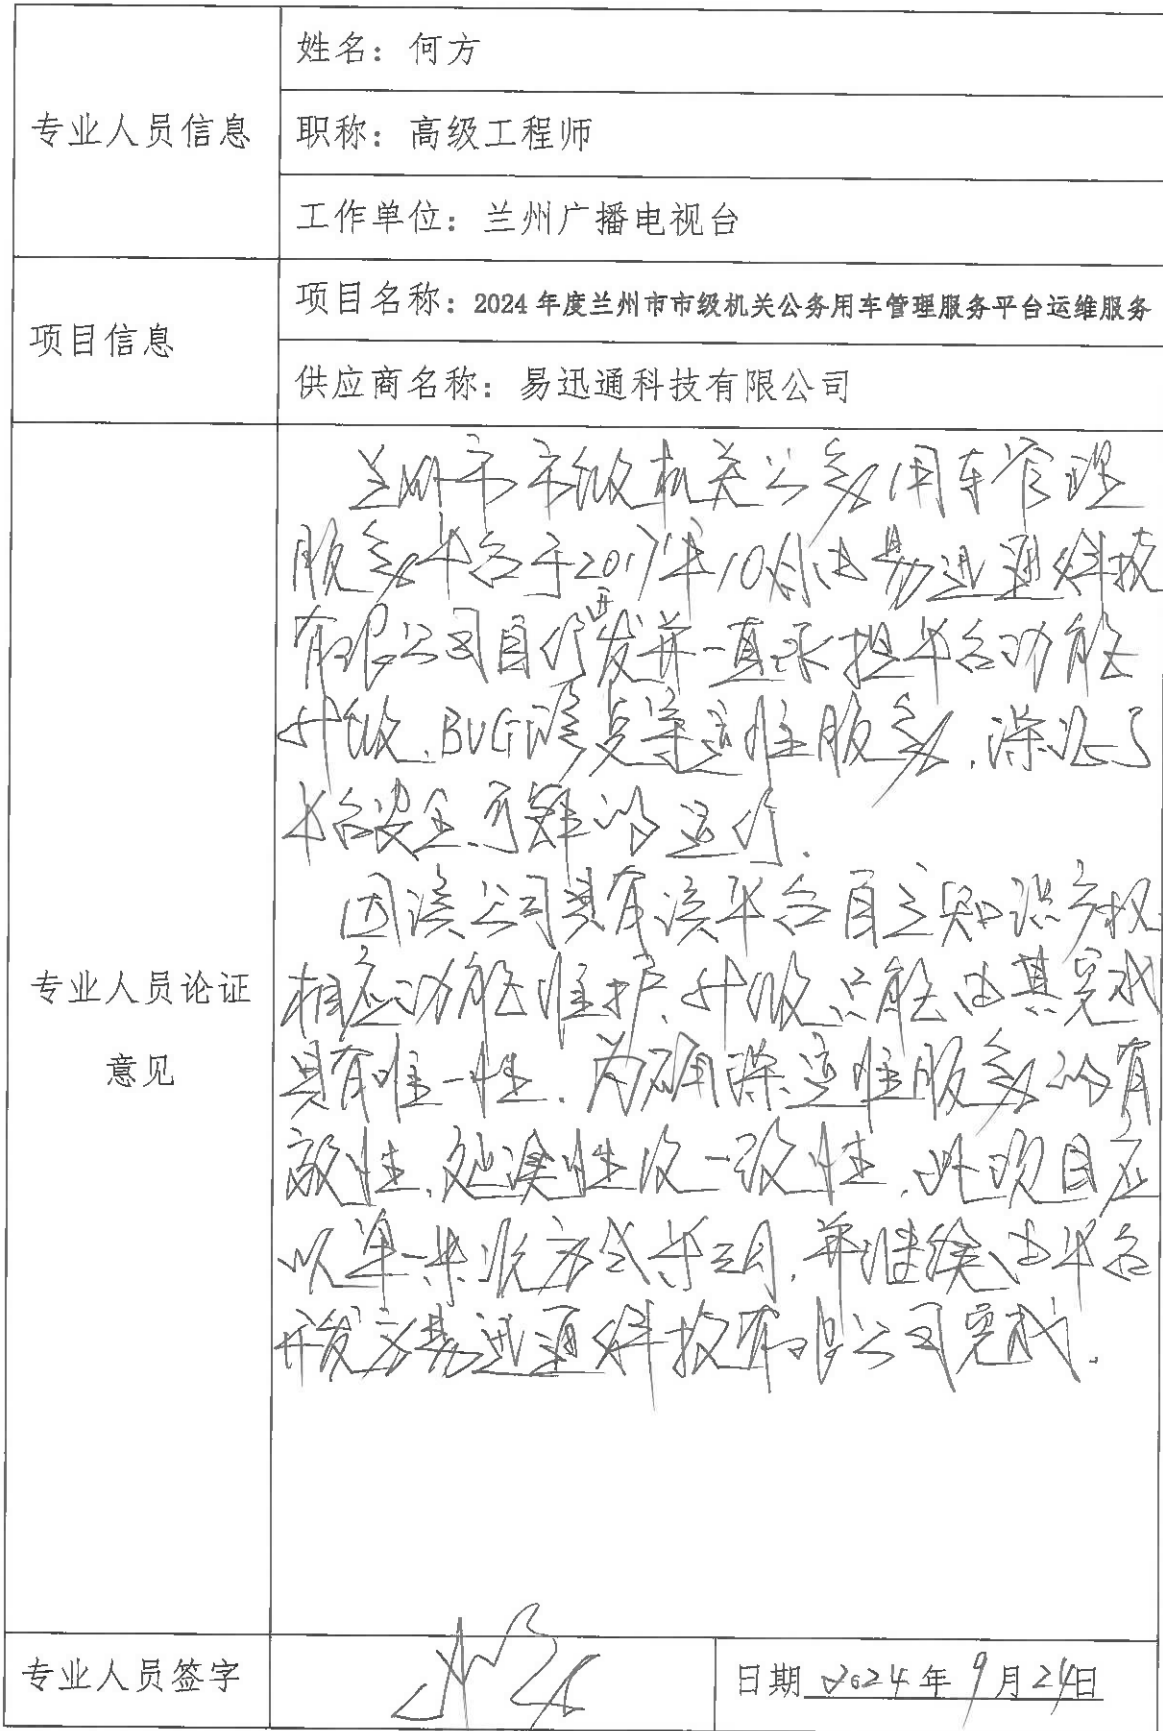 专业人员信息
姓名：何方
职称：高级工程师
工作单位：兰州广播电视台
项目信息
项目名称：2024年度兰州市市级机关公务用车管理服务平台运维服务
供应商名称：易迅通科技有限公司
专业人员论证
意见
兰州市市级机关公务用车管理
服务平台于2017年10月由易迅通科技
有限公司自行开发并一直承担平台功能
升级、BUG修复等运维服务,保证了
平台安全、可靠的运行.
因该公司具有该平台自主知识产权
相应功能维护、升级只能由其完成
具有唯一性.为确保运维服务的有
效性、延续性及一致性,此项目应
以单一来源方式采购,并继续由平台
开发方易迅通科技有限公司完成.
专业人员签字
日期 2024年9月24日